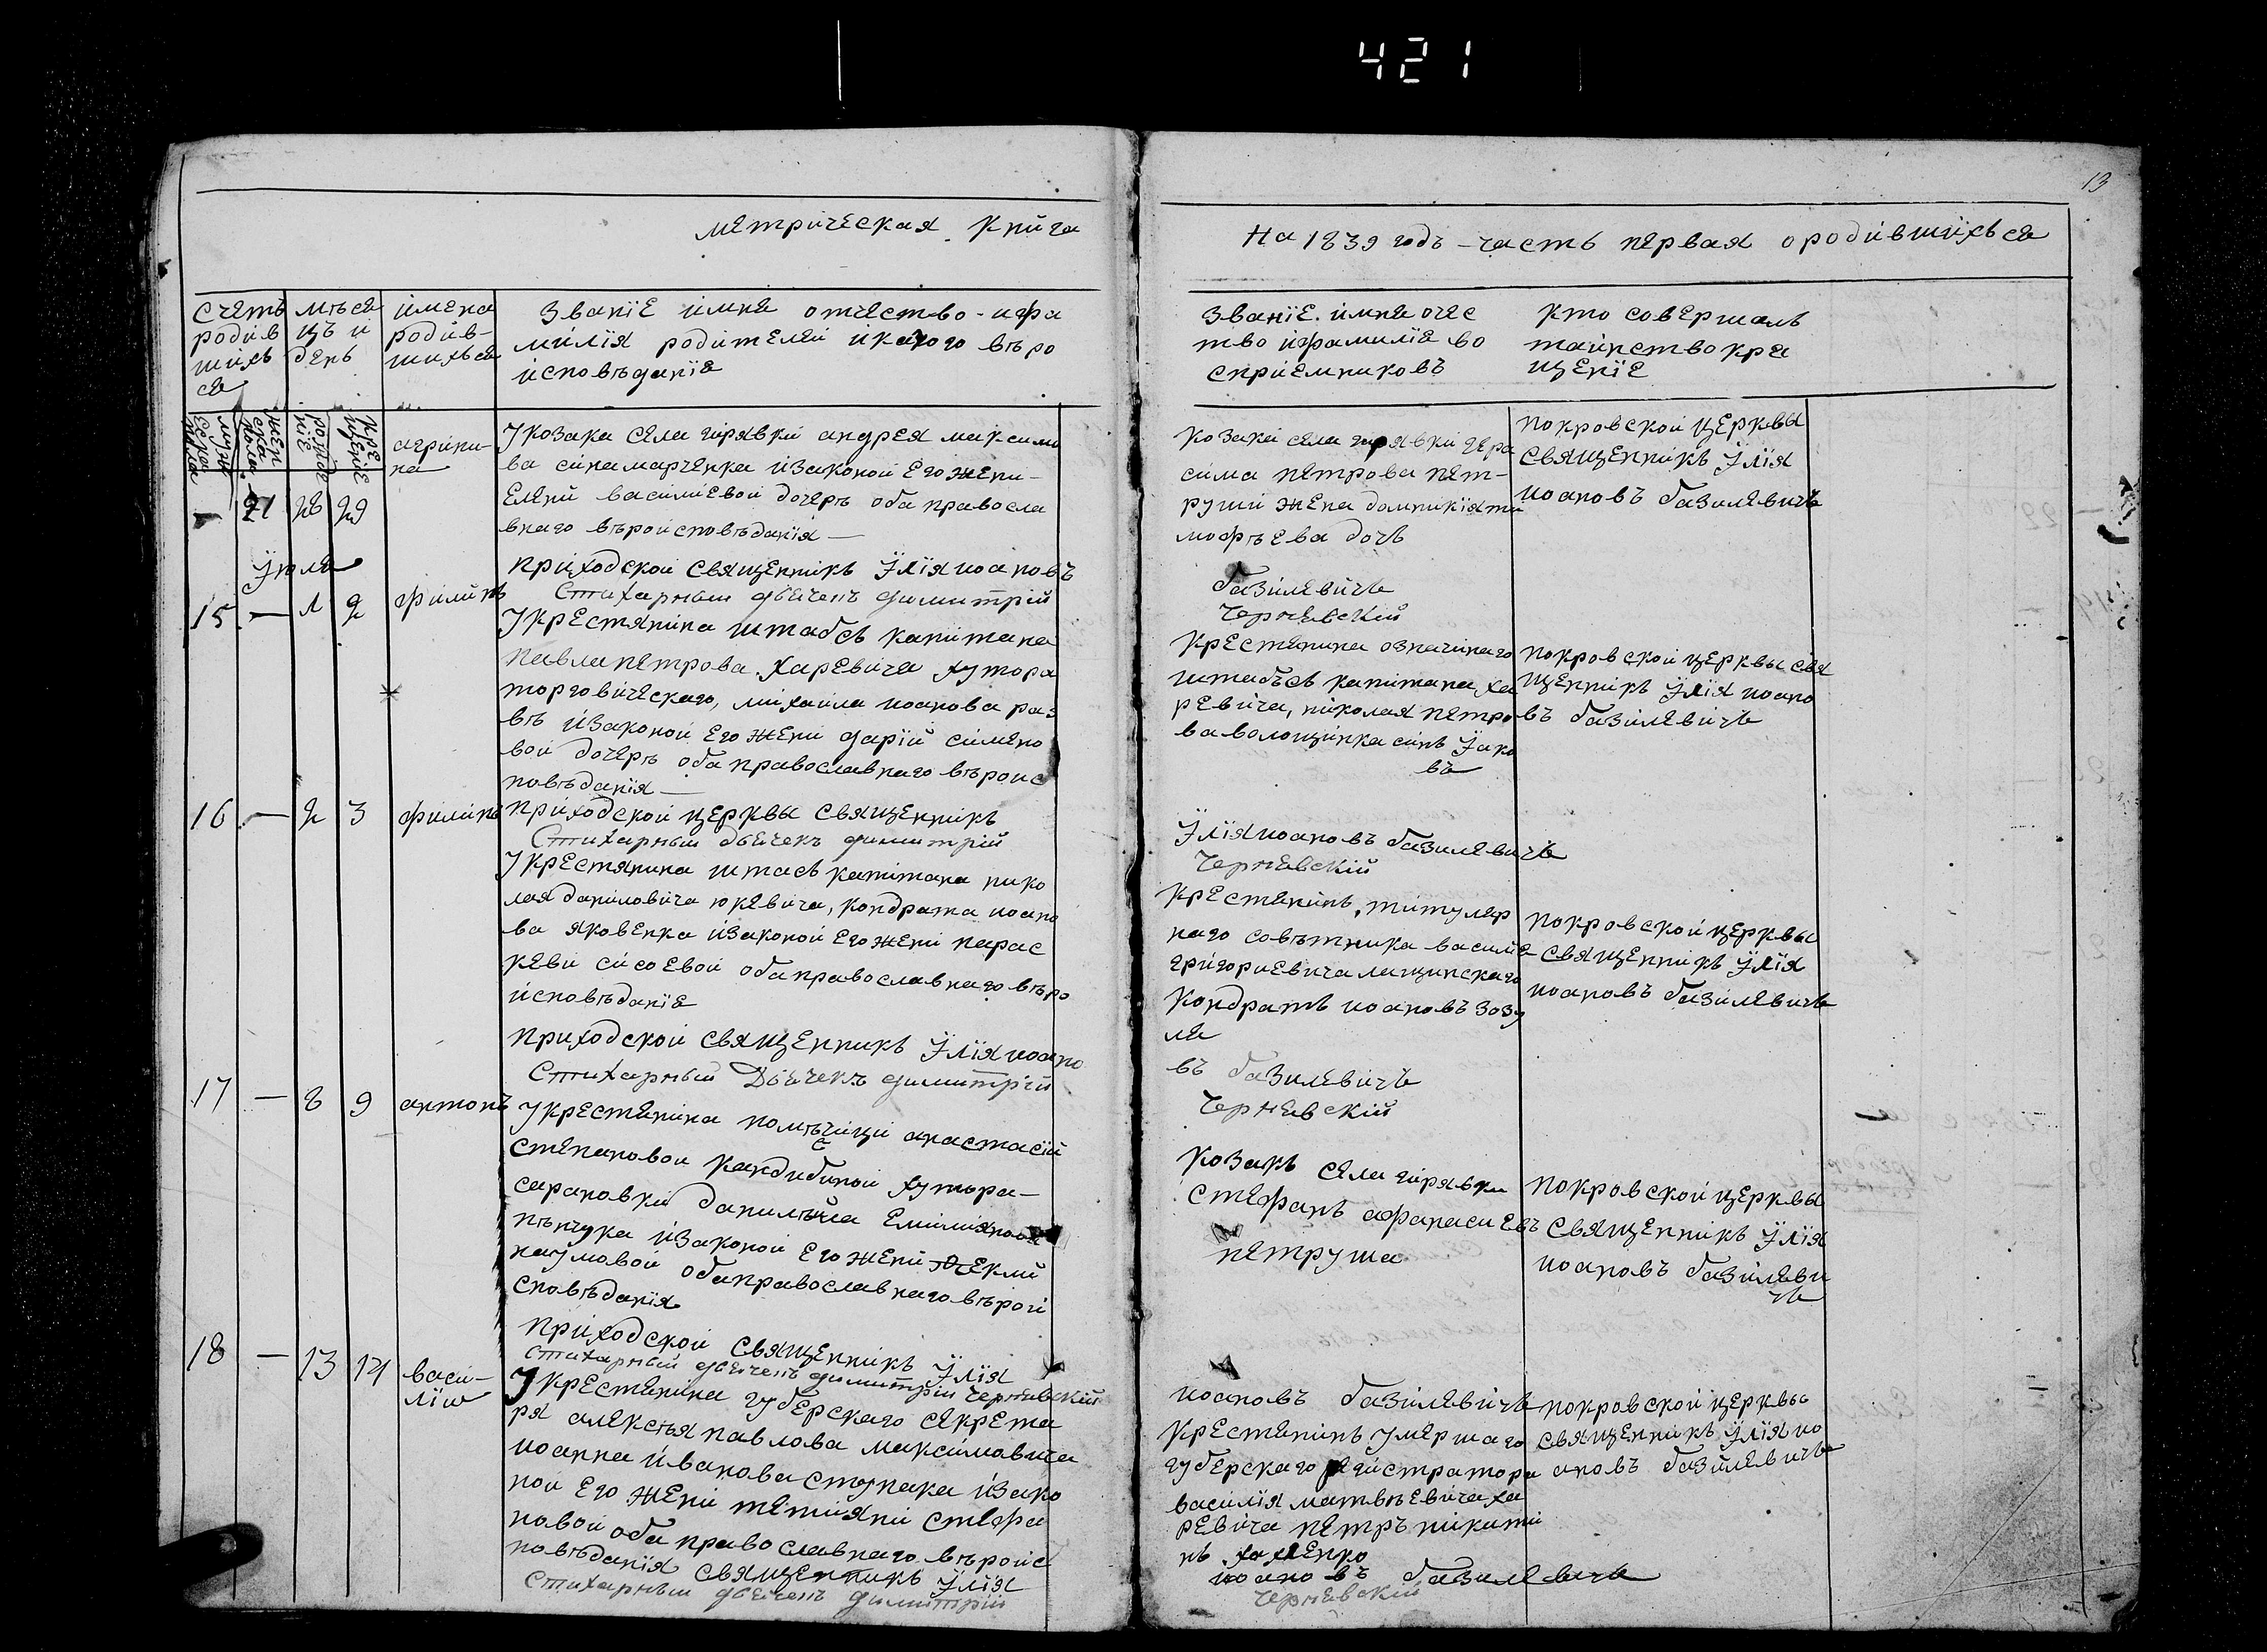 421
13
метрическая книга
На 1839 годъ - часть первая ородившихъся
счетъ
родив
шихъ
ся
мѣся
цъ и
день
имена
родив-
шихъся
Званїе имня отчество - ифа
милїя родителей икакого вѣро
исповѣданїя
Званїе. имня очес
тво ифамилїя во
сприемниковъ
Кто совершалъ
таинство кре
щенїе
мужескаго пола
женска пола
рожденїе
крещенїе
21
28
29
агрипи-
на
У козака села гирявки андрея максимо
ва сина марченка изаконой его жени-
елени василиевой дочерь оба правосла
внаго вѣроисповѣданїя —
приходской священникъ Илїя иоановъ
Стихарный дьячекъ димитрій
козака села гирявки гера
сима петрова пет-
руши жена домникїя ти
мофѣева дочь
базилевичь
Чернявский
покровской церквы
священникъ Илїя
иоановъ базилевичь
Июля
15
—
1
2
филипъ
У крестянина штабсъ капитана
павла петрова харевича хутора
торговическаго, михаила иоанова раз
въ изаконой его жени дарїй симено
вой дочерь оба православнаго вѣроис
повѣданїя —
приходской церквы священникъ
Стихарный дьячекъ димитрій
Крестянина означинаго
штабъсъ капитана, ха
ревича, николая петро
ва волощинка синъ Яко
въ
Илїя иоановъ базилевичь
Чернявский
покровской церквы свя
щенникъ Илїя иоано
въ базилевичь
16
—
2
3
филипъ
У крестянина штасъ капитана нико
лая даниловича юкевича, кондрата иоано
ва яковенка изаконой его жени парас
кеви сисоевой оба православнаго вѣро
исповѣданїя
приходской священникъ Илїя иоано
Стихарный Дьячекъ димитрій
крестянинъ, титуляр
наго совѣтника василя
григориевича лащинскаго
кондратъ иоановъ зозу
ля
въ базилевичь
Чернявский
покровской церквы
священникъ Илїя
иоановъ базилевичь
17
—
8
9
антонъ
У крестянина помѣщици анастасїй
степановой кандибиной хутора-
сарановки данилыча емилияново
пѣнчука изаконой его жени Феклй
наумовой оба православнаго вѣрой
сповѣданїя
приходской священникъ Илїя
Стихарный дьячекъ димитрій Чернявский
козакъ села гирявки
стефанъ афанасиевъ
петруша
иоановъ базилевичь
покровской церквы
священникъ Илїя
иоановъ базилеви
чь
18
—
13
14
васи-
лїй
У крестянина губерскаго секрета
ря алексѣя павлова максимовича
иоанна иванова ступака изако
ной его жени тетияни стефа
новой оба православнаго вѣроис
повѣданїя священникъ Илїя
Стихарный дьячекъ димитрій
крестянинъ умершаго
губерскаго регистратора
василїя матвѣевича ха
ревича петръ никити
нъ
иоановъ базилевичь
Чернявский
покровской церквы
священникъ Илїя ио
ановъ базилевичь